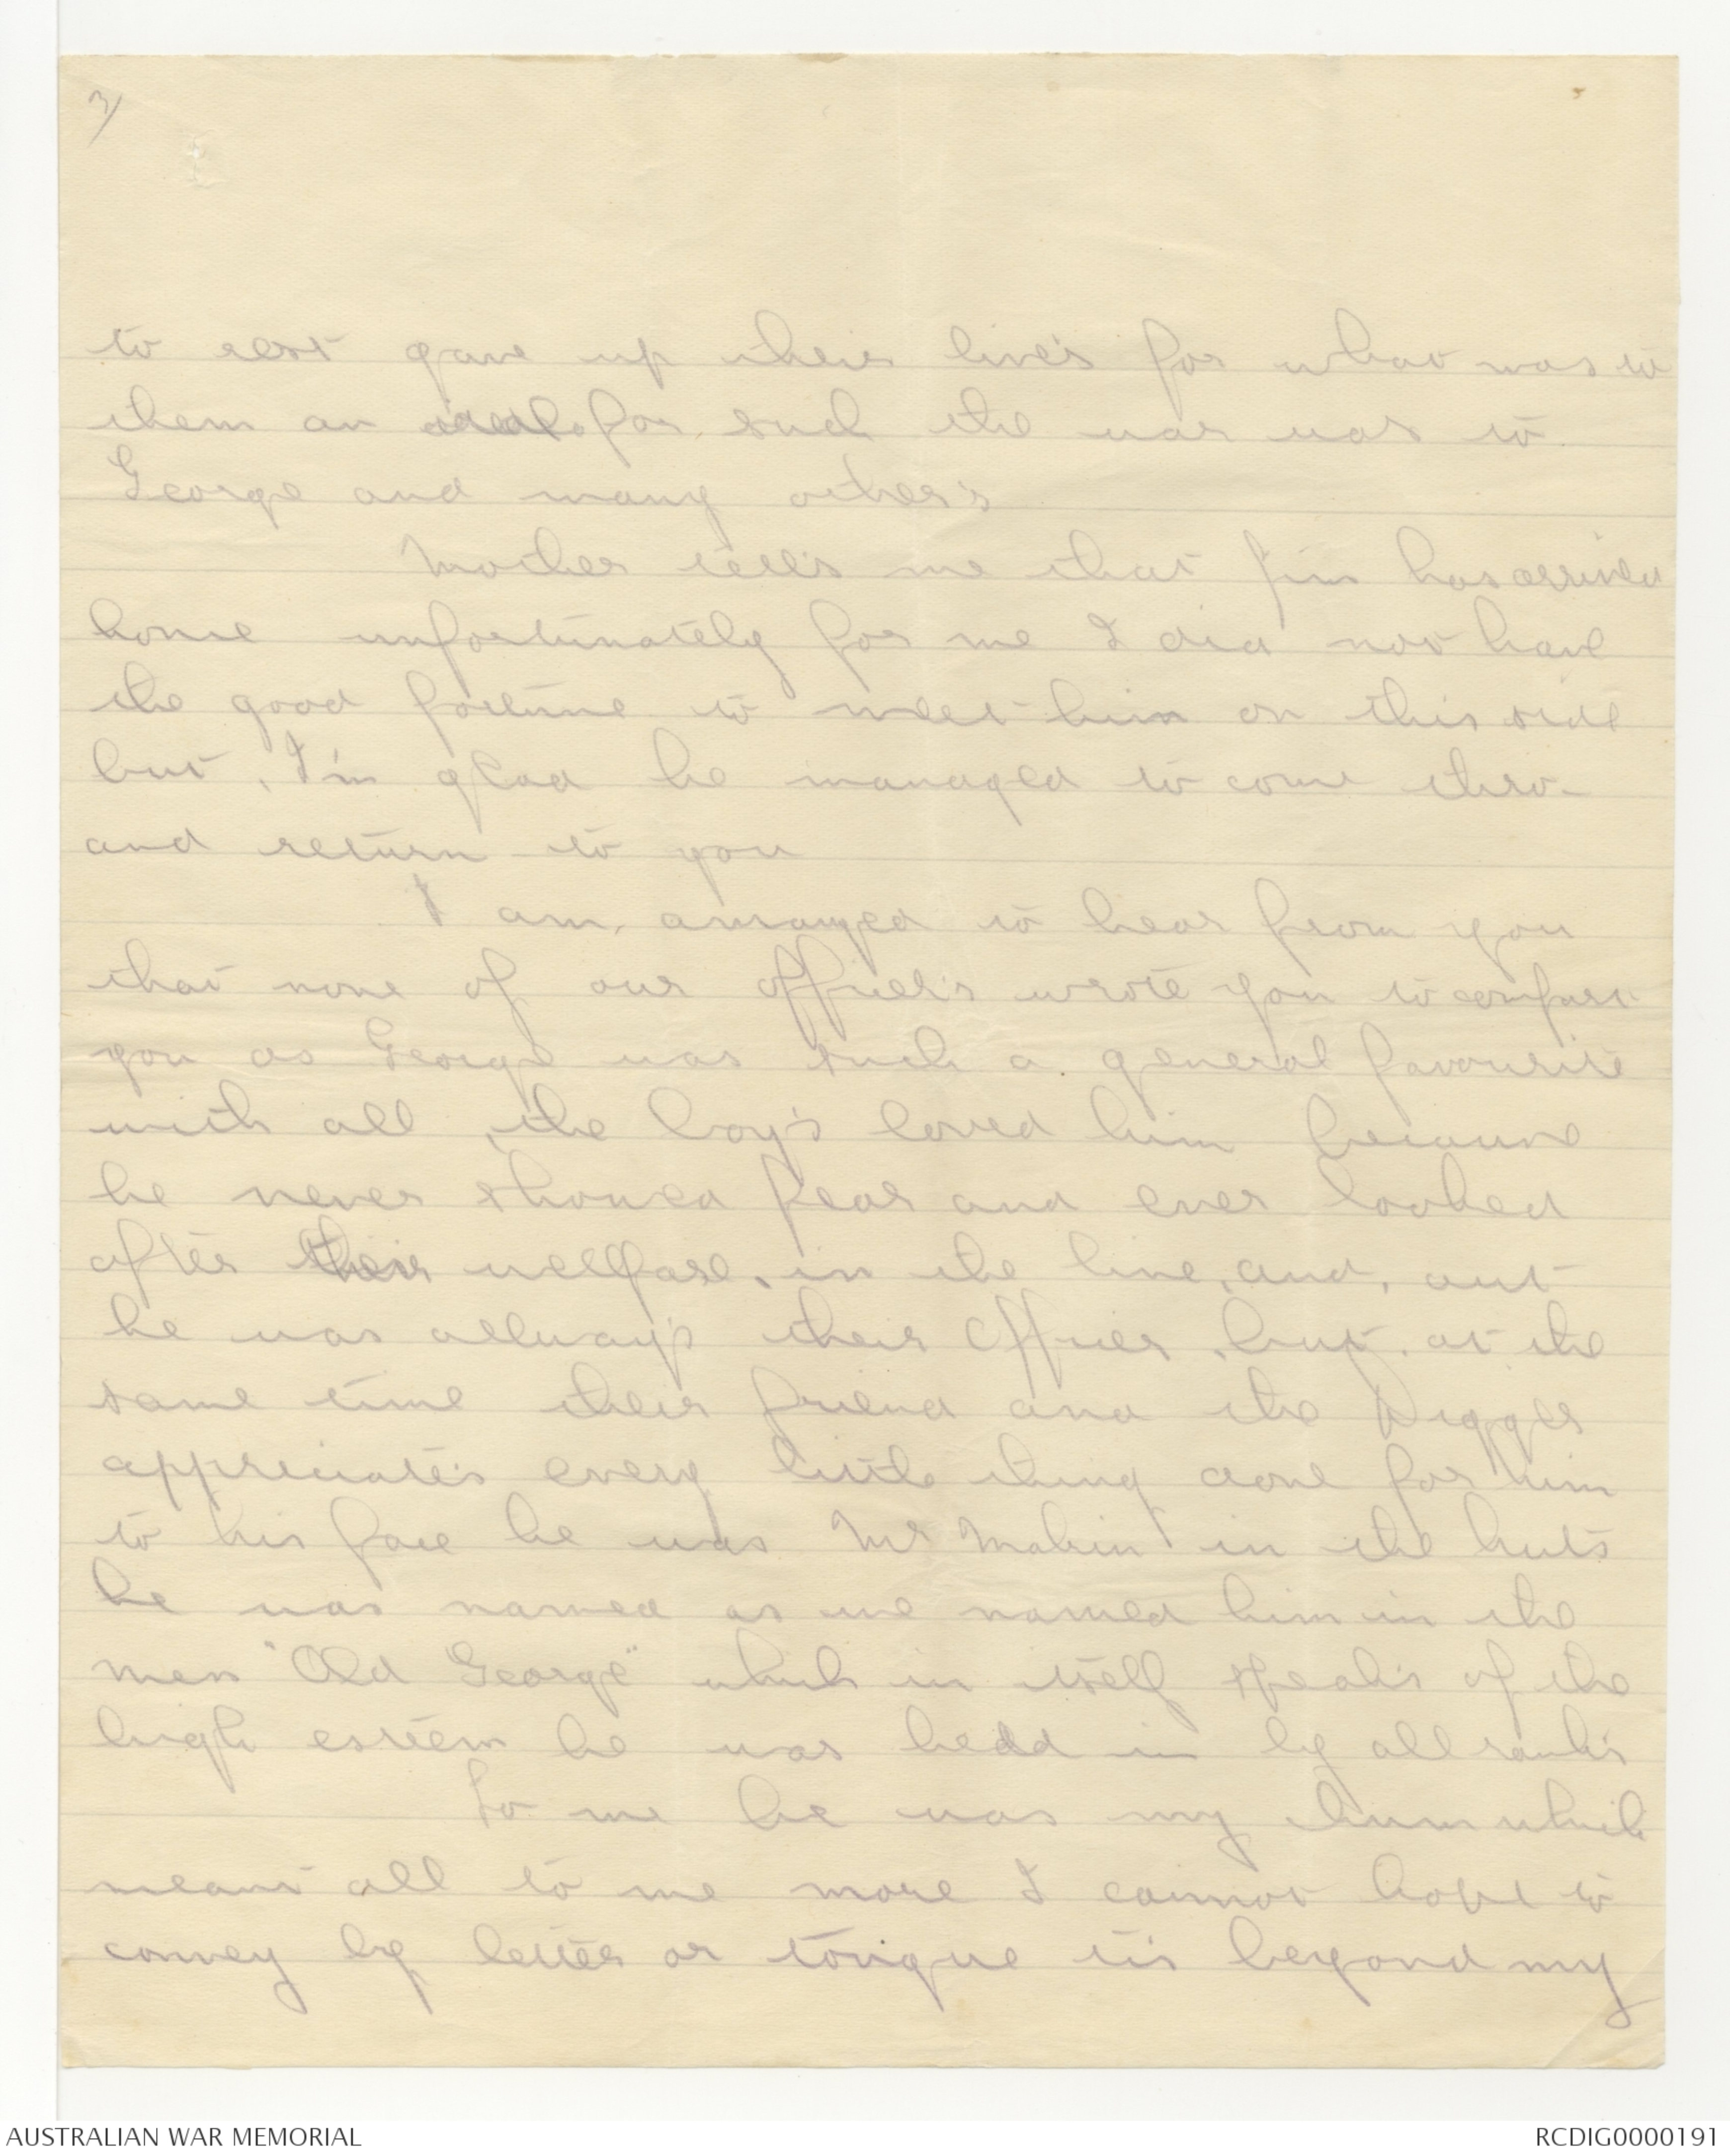 3/
to rest gave up their live's for what was to
them an ideal. for, such the war was to
George and many other's
Mother tell's me that Jim has arrived
home unfortunately for me I did not have
the good fortune to meet him on this side
but, I'm glad he managed to come thro-
and return to you
I am, amazed to hear from you
that none of our officer's wrote you to comfort
you as George was such a general favourite
with all, the boy's loved him because
he never showed fear and ever looked
after their wellfare, in the line, and, out
he was allway's their Officer, but, at the
same time their friend and the Digger
appreciate's every little thing done for him
to his face he was Mr Makin in the huts
he was named as we named him in the
mess "Old George" which in itself speak's of the
high esteem he was held in by all rank's
To me he was my chum which
meant all to me more I cannot hope to
convey by letter or tongue tis beyond my
AUSTRALIAN WAR MEMORIAL
RCDIG0000191